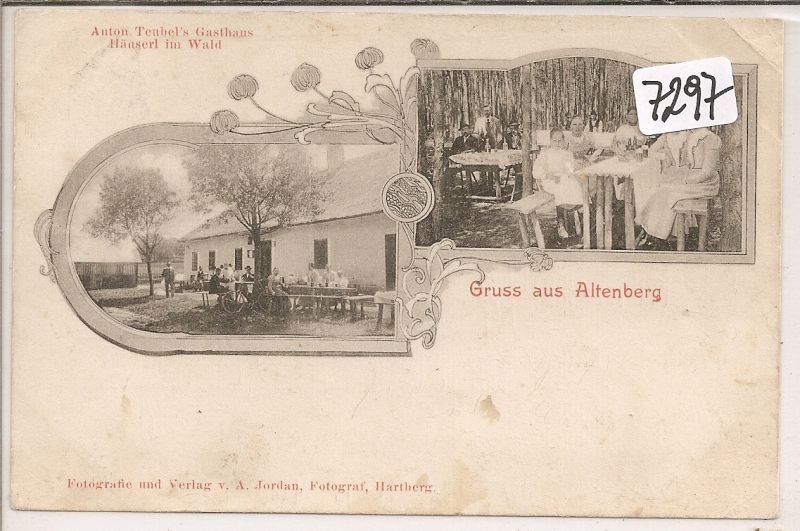 Anton Teubel's Gasthaus
Häuserl im Wald
7297
Gruss aus Altenberg
Fotografie und Verlag v. A. Jordan, Fotograf, Hartberg.